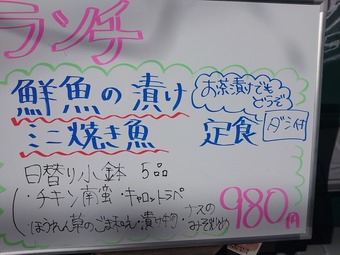 ランチ
鮮魚の漬け
お茶漬けでも
どうぞ
ミニ焼き魚 定食 ダシ付
日替り小鉢 5品
(・チキン南蛮・キャロットラペ
ほうれん草のごま和え・漬け物・ナスの
みそ炒め
980円